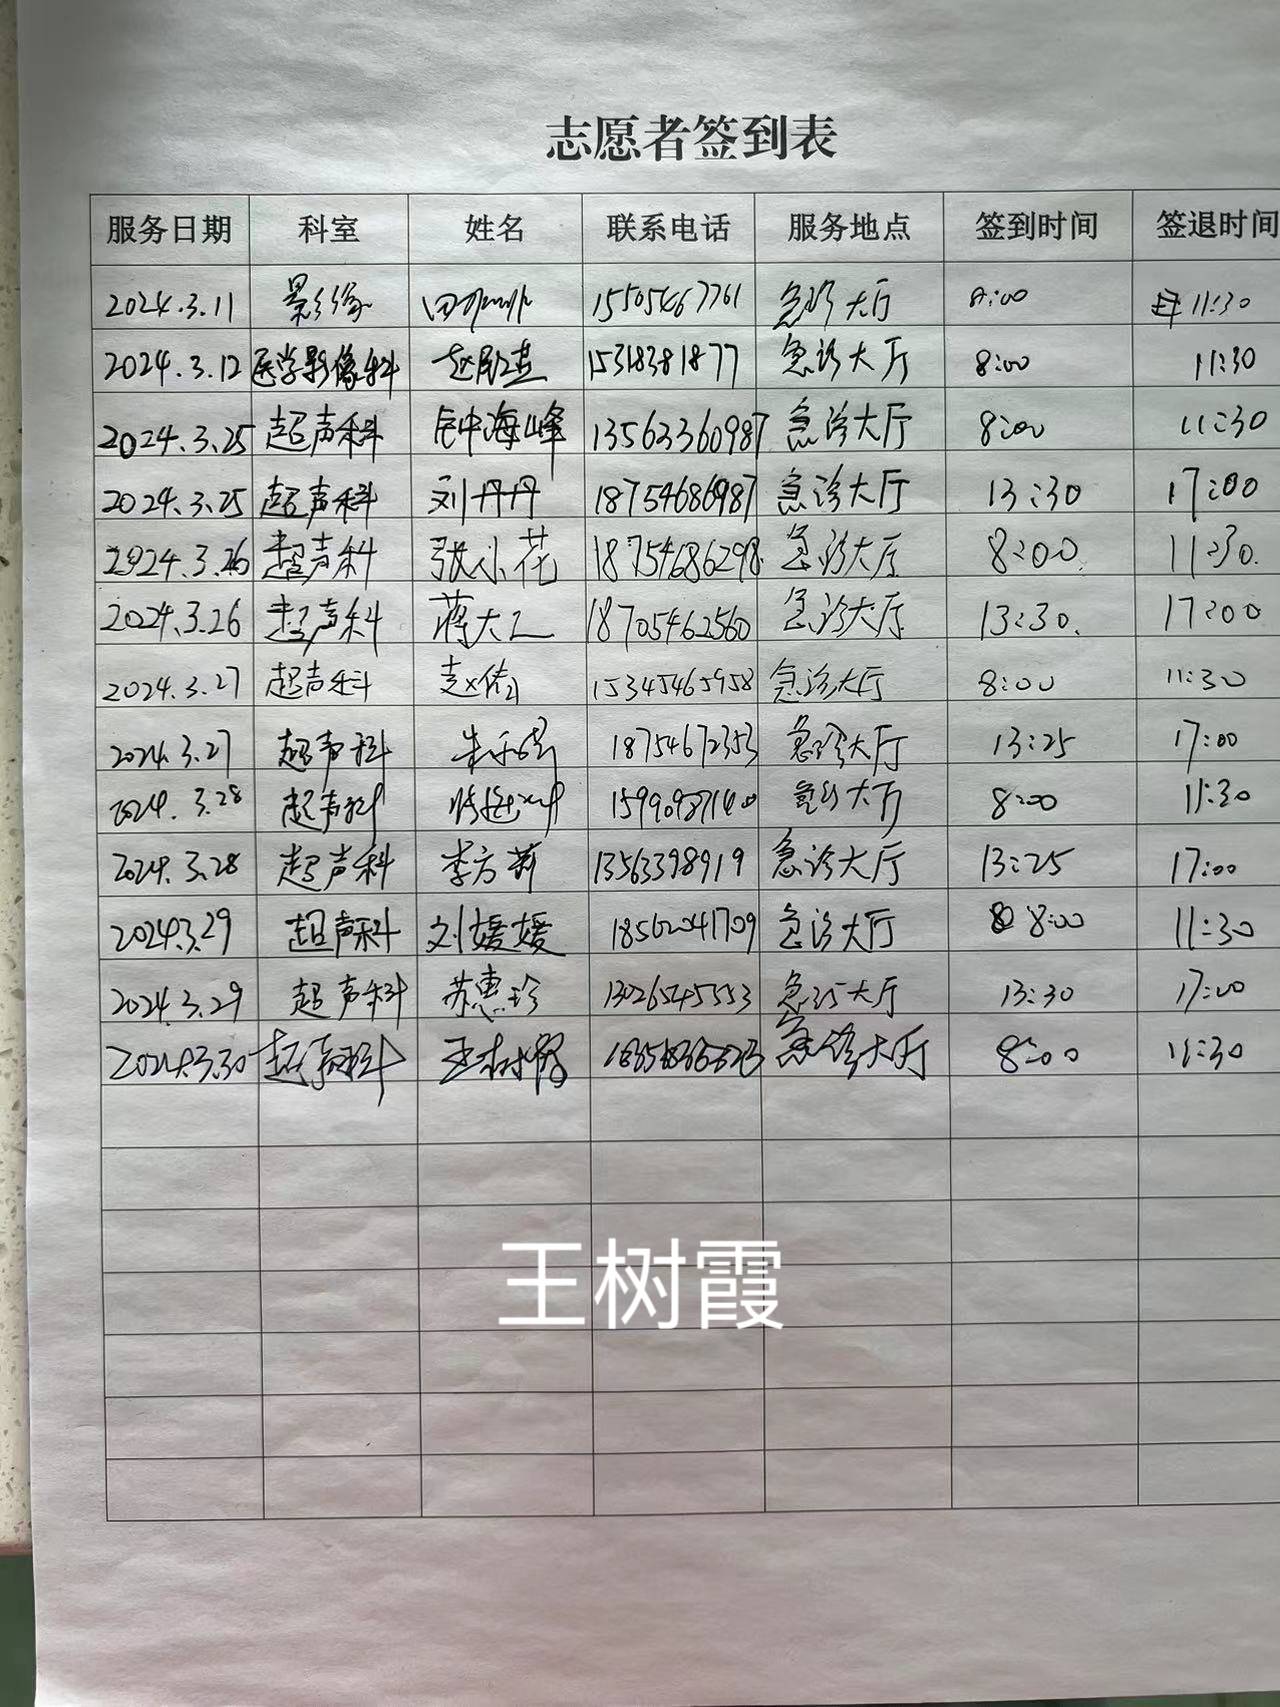 志愿者签到表
服务日期 科室 姓名 联系电话 服务地点 签到时间 签退时间
2024.3.11 影像 田 15505467761 急诊大厅 8:00 11:30
2024.3.12 医学影像科 赵 15318381877 急诊大厅 8:00 11:30
2024.3.25 超声科 海峰 13563360987 急诊大厅 8:00 11:30
2024.3.25 超声科 刘丹丹 18754686987 急诊大厅 13:30 17:00
2024.3.26 超声科 张小花 18754686298 急诊大厅 8:00 11:30.
2024.3.26 超声科 蒋大 18705462560 急诊大厅 13:30. 17:00
2024.3.27 超声科 赵 15345465958 急诊大厅 8:00 11:30
2024.3.27 超声科 18754672353 急诊大厅 13:25 17:00
2024.3.28 超声科 急诊大厅 8:00 11:30
2024.3.28 超声科 李方莉 13563398919 急诊大厅 13:25 17:00
2024.3.29 超声科 刘媛媛 18562041709 急诊大厅 8:00 11:30
2024.3.29 超声科 苏惠珍 急诊大厅 13:30 17:00
2024.3.30 超声科 王树霞 急诊大厅 8:00 11:30
王树霞